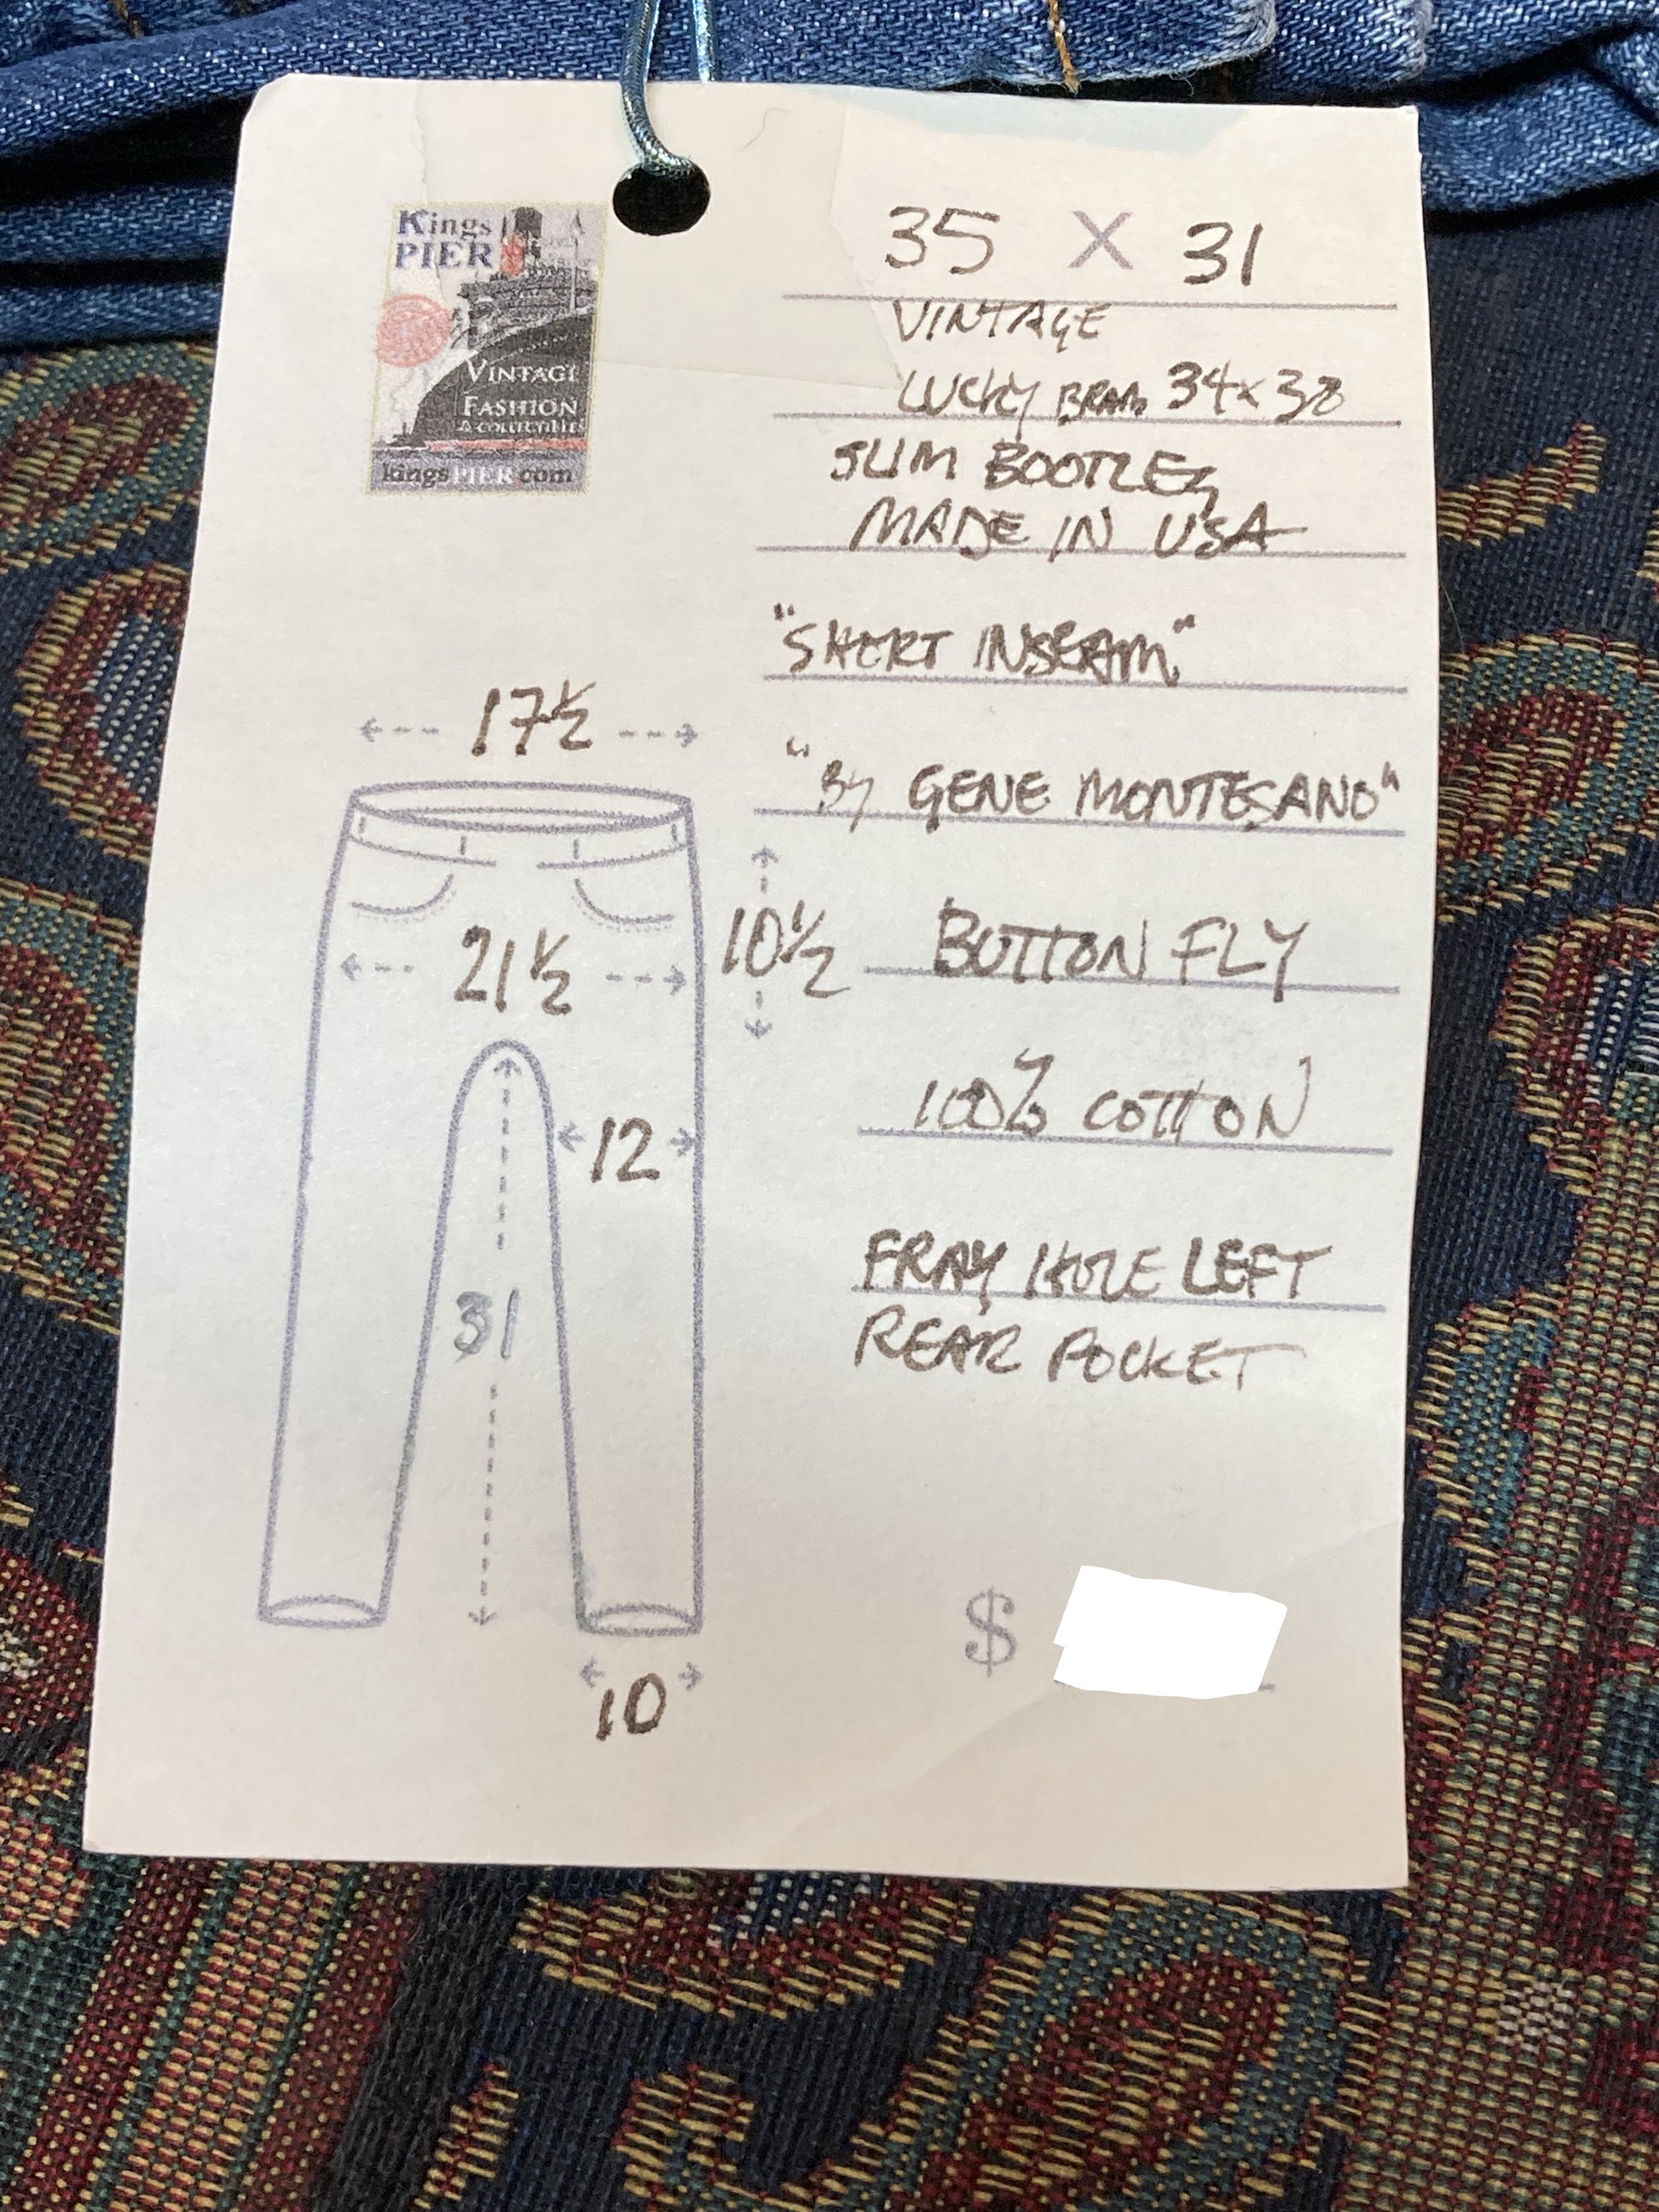 Kings
PIER
VINTAGE
FASHION
& COLLECTIBLES
kingsPIER.com
35 X 31
VINTAGE
LUCKY BRAND 34x38
SLIM BOOTLEG
MADE IN USA
"SHORT INSEAM"
"BY GENE MONTESANO"
BUTTON FLY
100% COTTON
FRAY HOLE LEFT
REAR POCKET
17½
21½
10½
12
31
10
$